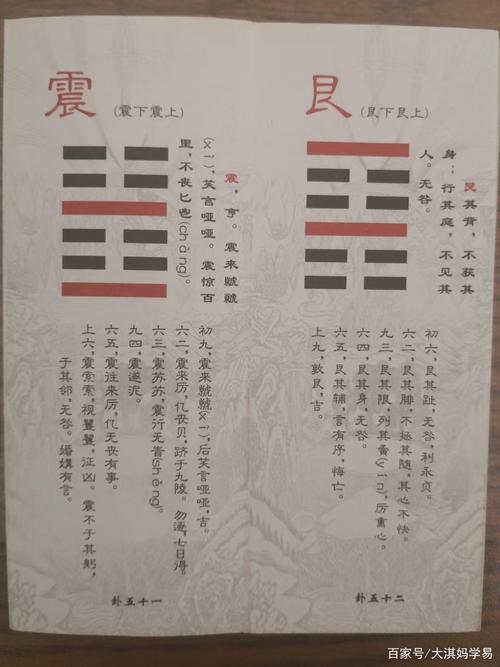 震
(震下震上)
震，亨。震来虩虩
(xì)，笑言哑哑。震惊百
里，不丧匕鬯(chàng)。
初九，震来虩虩(xì)，后笑言哑哑，吉。
六二，震来厉，亿丧贝，跻于九陵。勿逐，七日得。
六三，震苏苏，震行无眚(shěng)。
九四，震遂泥。
六五，震往来厉，亿无丧有事。
上六，震索索，视矍矍，征凶。震不于其躬，
于其邻，无咎。婚媾有言。
卦五十一
艮
(艮下艮上)
艮其背，不获其
身；行其庭，不见其
人。无咎。
初六，艮其趾，无咎，利永贞。
六二，艮其腓，不拯其随，其心不快。
九三，艮其限，列其夤(yín)，厉熏心。
六四，艮其身，无咎。
六五，艮其辅，言有序，悔亡。
上九，敦艮，吉。
卦五十二
百家号/大淇妈学易